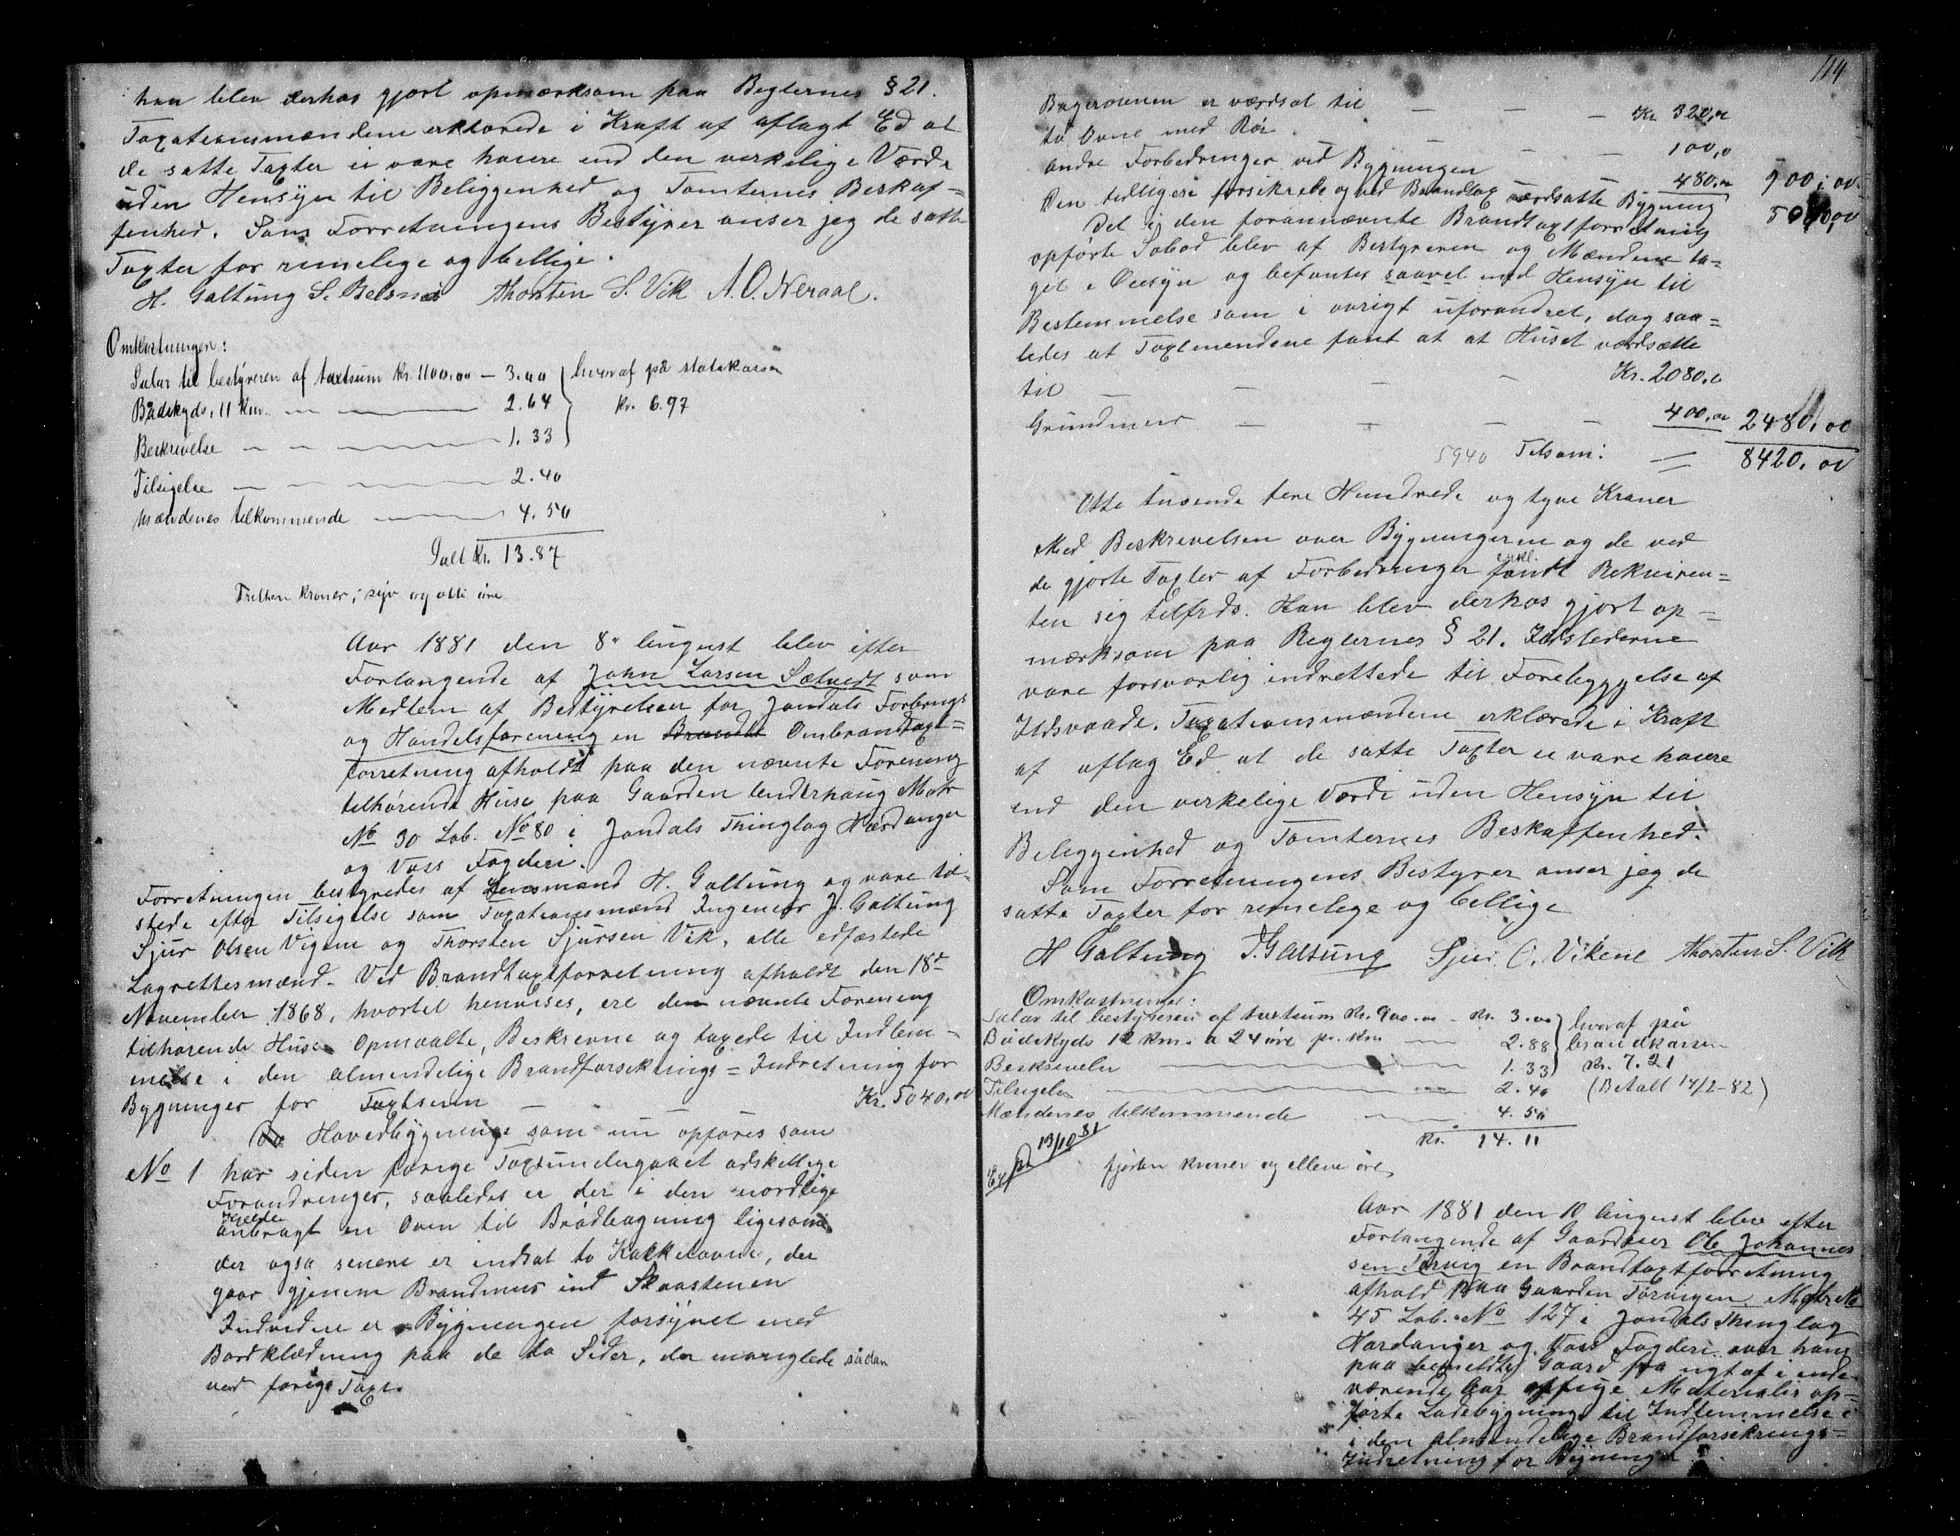 han blev derhos gjort opmærksom paa Reglernes § 21.
Taxationsmændene erklærede i Kraft af aflagt Ed at
de satte Taxter ei vare høiere end den verkelige Værde
uden Hensyn til Beliggenhed og Tomternes Beskaf=
fenhed. Som Forretningens Bestyrer anser jeg de satte
Taxter for remelege og bellige.
H. Galtung S. Belsnes Thorsten S. Vik A. O. Neraal.
Omkostninger:
Salar til bestyreren af taxtsum kr. 1100.00 — 3.00 hvoraf på statskassen
Bådskyds, 11 km. — 2.64 kr. 6.97
Beskrivelse — 1.33
Tilsigelse — 2.40
Mændenes tilkommende — 4.50
Ialt Kr. 13.87
Tretten Kroner, syv og otti øre
Aar 1881 den 8de August blev efter
Forlangende af John Larsen Sætvedt som
Medlem af Bestyrelsen for Jondals Forbrugs
og Handelsforening en Brandt Ombrandtaxt=
forretning afholdt paa den nævnte Forening
tilhørende Huse paa Gaarden Underhaug Matr
No 30 Løb. No 80 i Jondals Thinglag Hardanger
og Voss Fogderi.
Forretningen bestyredes af Lensmand H. Galtung og vare til-
stede efter Tilsigelse som Taxationsmænd Ingeniør J. Galtung
Sjur Olsen Vigene og Thorsten Sjursen Vik, alle edfæstede
Lagrettesmænd. Ved Brandtaxtforretning afholdt den 18de
November 1868, hvortil henvises, ere den nævnte Forening
tilhørende Huse Opmaalte, Beskrevne og taxede til Indlem-
melse i den almendelige Brandforsikrings=Indretning for
Bygninger for Taxtsum — Kr. 5040,00
Hovedbygninge som nu opføres som
No 1 har siden forige Taxt undergaaet adskellige
Forandringer, saaledes er der i den nordlige
Kjelder
anbragt en Oven til Brødbagning ligesom
der også senere er indsat to Kakkelovne, der
gaar gjenem Brandmur ind Skaastenen
Indvedere er Bygningen forsynet med
Bordklædning paa de to Sider, der manglede sådan
ved forige Taxt.
114
Bagerovnen er værdsat til — Kr 320,00
to Ovne med Rør — 100,0
andre Forbedringer ved Bygningen — 480,00 900,00
Den tidligere forsikrede og ved Brandtaxt værdsatte Bygning 5040,00
Det i den forannævnte Brandtaxtforretning
opførte Søbod blev af Bestyreren og Mændene ta=
get i Øiesyn og befantes saavel med Hensyn til
Bestemmelse som i øvrigt uforandret, dog saa=
ledes at Taxtmendene fant at at Huset værdsætte
til — Kr. 2080,0
Grundmur — 400,00 2480,00
5940 Tilsam: — 8420,00
Otte tusende fire Hundrede og tyve Kroner
Med Beskrivelsen over Bygningerne og de ved
de gjorte Taxter af Forbedringer fandt Rekviren=
ten sig tilfreds. Han blev derhos gjort op=
mærksom paa Reglernes § 21. Ildstederne
vare forsvarlig indrettede til Forebyggelse af
Ildsvaade. Taxationsmændene erklærede i Kraft
af aflag Ed at de satte Taxter ei vare høiere
end den verkelige Værde uden Hensyn til
Beleggenhed og Tomternes Beskaffenhed.
Som Forretningens Bestyrer anser jeg de
satte Taxter for remelege og bellige
H Galtung J. Galtung Sjur O. Vikene Thorsten S. Vik
Omkostninger:
Salar til bestyreren af taxtsum Kr. 900.00 — Kr. 3.00 hvoraf på
Bådskyds 12 km. a 24 øre pr. km — 2.88 brandkassen
Beskrivelse — 1.33 Kr. 7.21
Tilsigelse — 2.40 (Betalt 14/2-82)
Mændenes tilkommende — 4.50
Kr. 14.11
13/10 81
fjorten kroner og elleve øre
Aar 1881 den 10 August blev efter
Forlangende af Gaardeier Ole Johannes
sen Torvig en Brandtaxtforretning
afhold paa Gaarden Torvigen Matr No
45 Løb. No 127 i Jondals Thinglag
Hardanger og Voss Fogderi over hans
paa bemeldte Gaard fra nyt af i inde-
værende Aar opførte Materialer op=
førte Ladebygning til Indlemmelse i
i den almendelige Brandforsikrings=
Indretning for Bygninger.